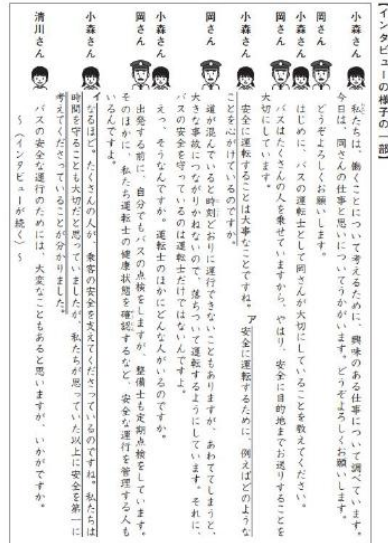 【インタビューの様子の一部】
小森さん
私たちは、働くことについて考えるために、興味のある仕事について調べています。
今日は、岡さんの仕事と思いについてうかがいます。どうぞよろしくお願いします。
岡さん
どうぞよろしくお願いします。
小森さん
はじめに、バスの運転士として岡さんが大切にしていることを教えてください。
岡さん
バスはたくさんの人を乗せていますから、やはり、安全に目的地までお送りすることを
大切にしています。
小森さん
安全に運転することは大事なことですね。ア安全に運転するために、例えばどのような
ことを心がけているのですか。
岡さん
道が混んでいると時刻どおりに運行できないこともありますが、あわててしまうと、
大きな事故につながりかねないので、落ちついて運転するようにしています。それに、
バスの安全を守っているのは運転士だけではないんですよ。
小森さん
えっ、そうなんですか。運転士のほかにどんな人がいるのですか。
岡さん
出発する前に、自分でもバスの点検をしますが、整備士も定期点検をしています。
そのほかに、私たち運転士の健康状態を確認するなど、安全な運行を管理する人も
いるんですよ。
小森さん
イなるほど。たくさんの人が、乗客の安全を支えてくださっているのですね。私たちは
時間を守ることも大切だと思っていましたが、私たちが思っていた以上に安全を第一に
考えてくださっていることが分かりました。
清川さん
バスの安全な運行のためには、大変なこともあると思いますが、いかがですか。
〜(インタビューが続く)〜